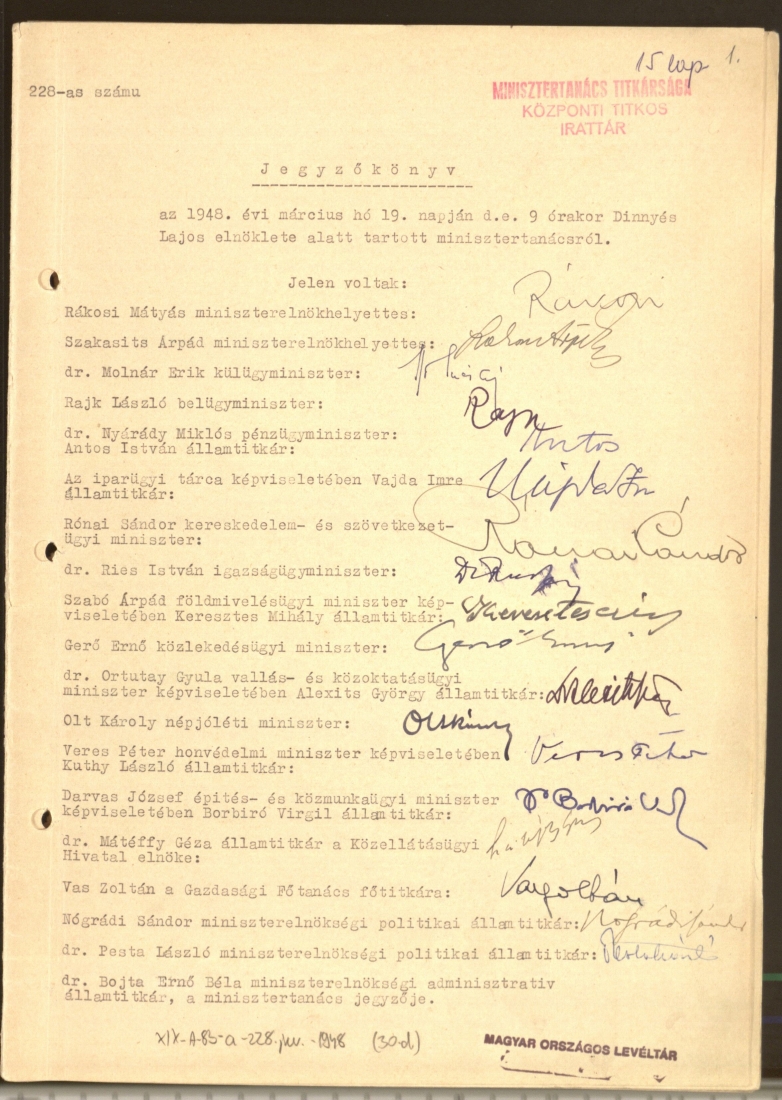 15 lap 1.
228-as számu
MINISZTERTANÁCS TITKÁRSÁGA
KÖZPONTI TITKOS
IRATTÁR
Jegyzőkönyv
az 1948. évi március hó 19. napján d.e. 9 órakor Dinnyés
Lajos elnöklete alatt tartott minisztertanácsról.
Jelen voltak:
Rákosi Mátyás miniszterelnökhelyettes: Rákosi
Szakasits Árpád miniszterelnökhelyettes:
dr. Molnár Erik külügyminiszter:
Rajk László belügyminiszter: Rajk
dr. Nyárády Miklós pénzügyminiszter:
Antos István államtitkár: Antos
Az iparügyi tárca képviseletében Vajda Imre
államtitkár: Vajda
Rónai Sándor kereskedelem- és szövetkezet-
ügyi miniszter: Rónai Sándor
dr. Ries István igazságügyminiszter:
Szabó Árpád földmivelésügyi miniszter kép-
viseletében Keresztes Mihály államtitkár:
Gerő Ernő közlekedésügyi miniszter: Gerő Ernő
dr. Ortutay Gyula vallás- és közoktatásügyi
miniszter képviseletében Alexits György államtitkár:
Olt Károly népjóléti miniszter: Olt Károly
Veres Péter honvédelmi miniszter képviseletében Veres Péter
Kuthy László államtitkár:
Darvas József épités- és közmunkaügyi miniszter
képviseletében Borbiró Virgil államtitkár: Dr Borbiró
dr. Mátéffy Géza államtitkár a Közellátásügyi
Hivatal elnöke:
Vas Zoltán a Gazdasági Főtanács főtitkára: Vas Zoltán
Nógrádi Sándor miniszterelnökségi politikai államtitkár: Nógrádi Sándor
dr. Pesta László miniszterelnökségi politikai államtitkár:
dr. Bojta Ernő Béla miniszterelnökségi adminisztrativ
államtitkár, a minisztertanács jegyzője.
XIX-A-83-a-228.jkv.-1948 (30.d)
MAGYAR ORSZÁGOS LEVÉLTÁR